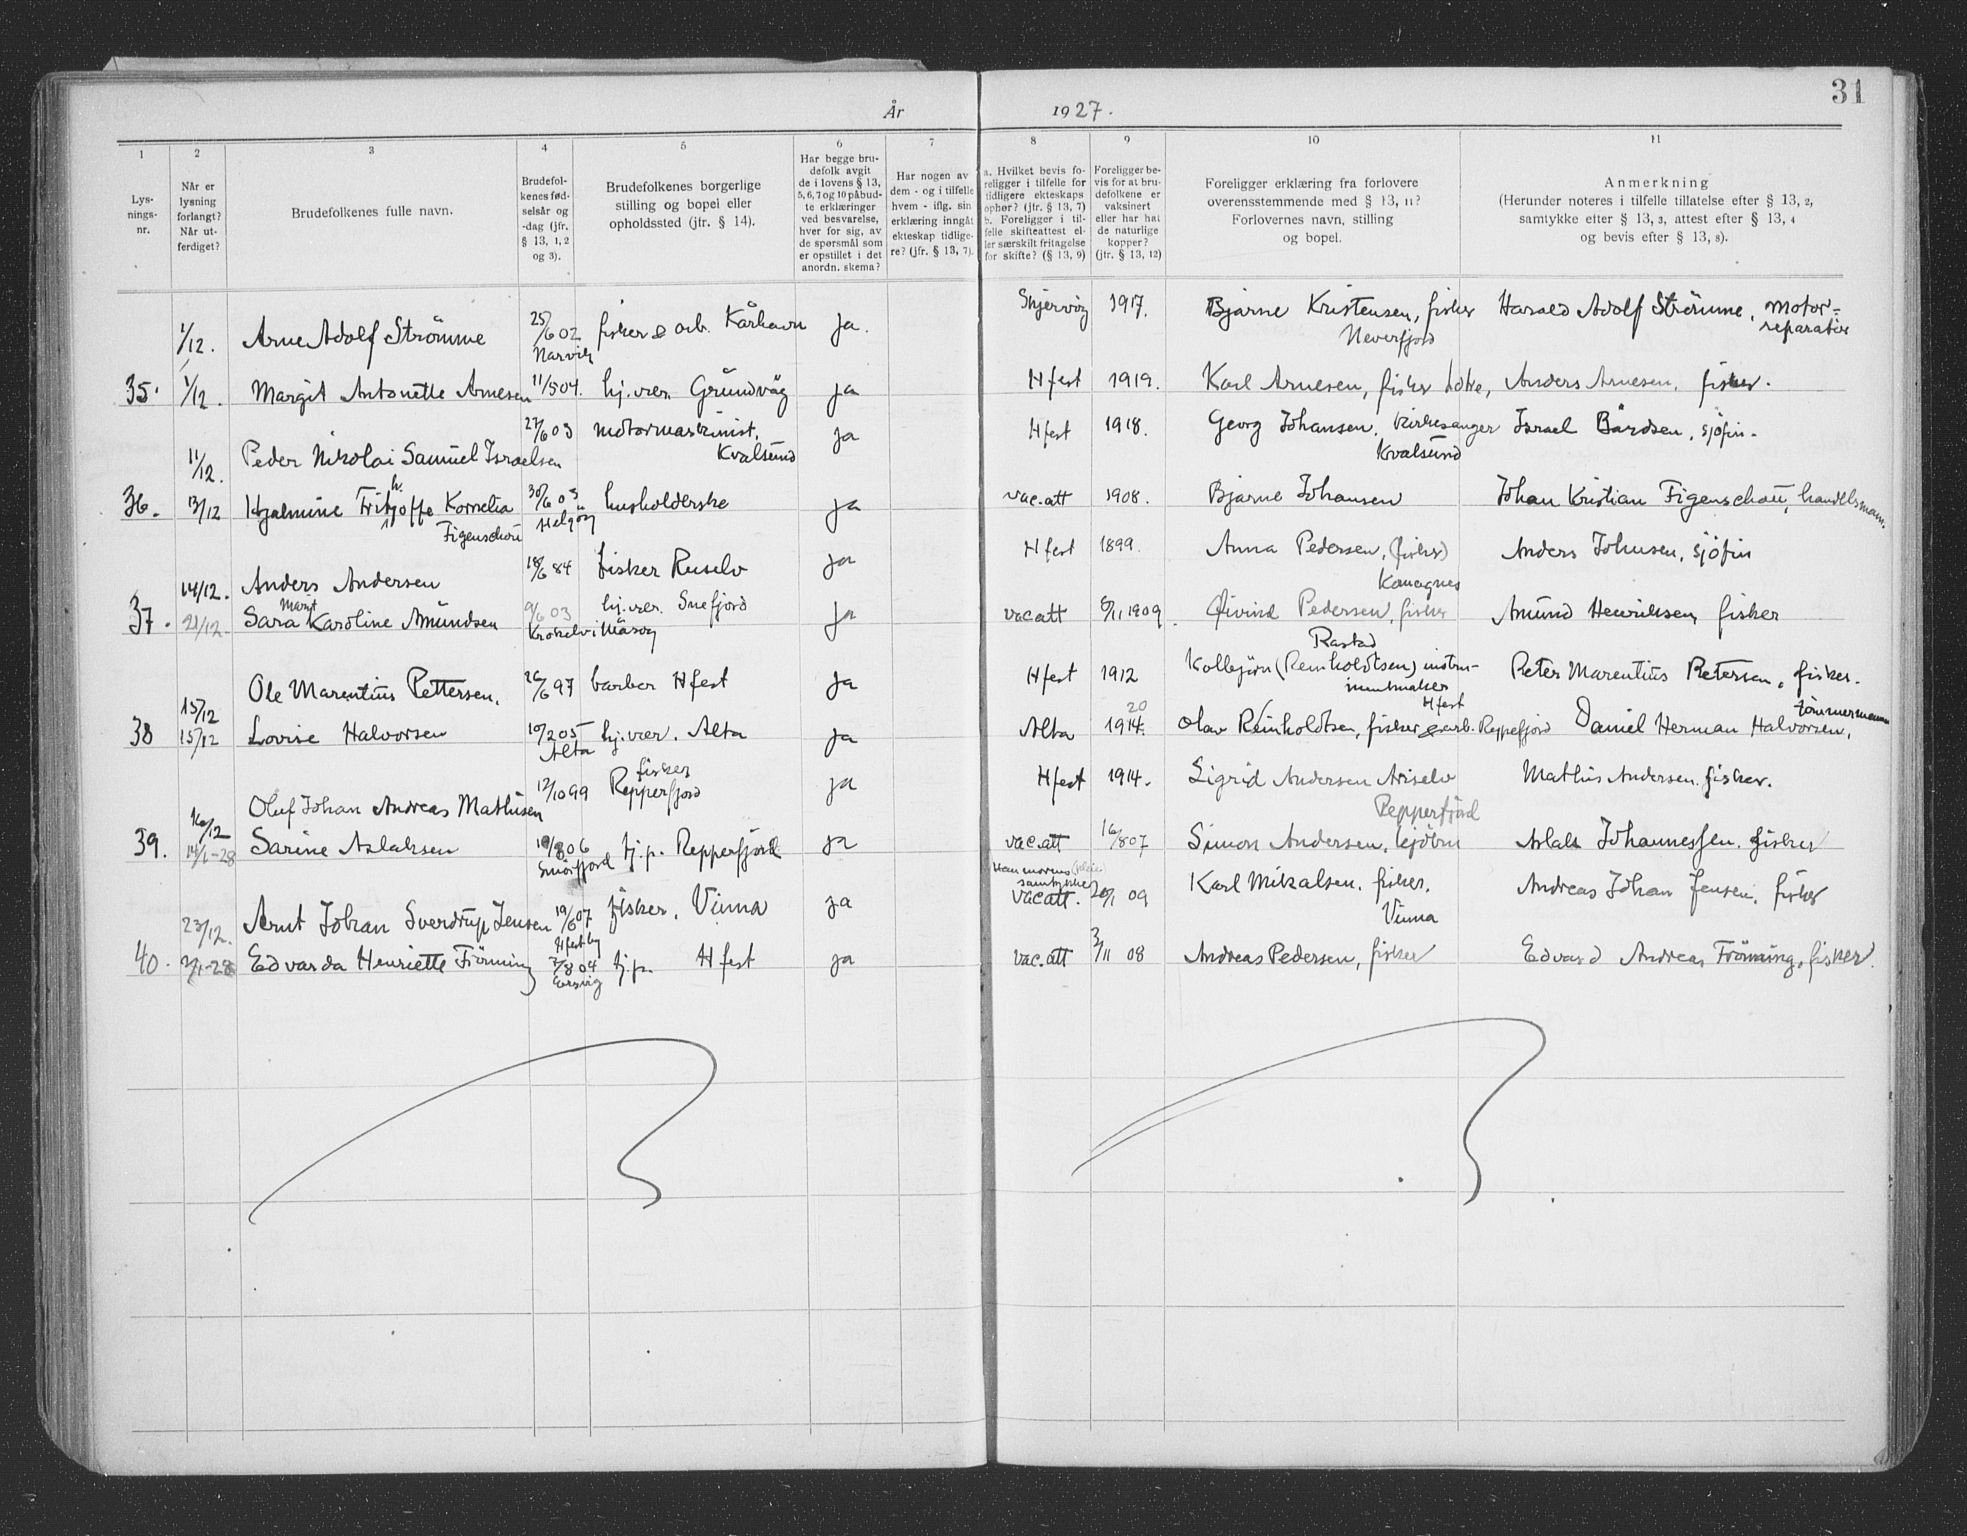 31
År 1927.
1 2 3 4 5 6 7 8 9 10 11
Lys-
nings-
nr.
Når er
lysning
forlangt?
Når ut-
ferdiget?
Brudefolkenes fulle navn.
Brudefol-
kenes fød-
selsår og
-dag (jfr.
§ 13, 1, 2
og 3).
Brudefolkenes borgerlige
stilling og bopel eller
opholdssted (jfr. § 14).
Har begge bru-
defolk avgit
de i lovens § 13,
5, 6, 7 og 10 påbud-
te erklæringer
ved besvarelse,
hver for sig, av
de spørsmål som
er opstillet i det
anordn. skema?
Har nogen av
dem - og i tilfelle
hvem - iflg. sin
erklæring inngåt
ekteskap tidlige-
re? (jfr. § 13, 7).
a. Hvilket bevis fo-
religger i tilfelle for
tidligere ekteskaps
ophør? (jfr. § 13, 7)
b. Foreligger i til-
felle skifteattest el-
ler særskilt fritagelse
for skifte? (§ 13, 9)
Foreligger be-
vis for at bru-
defolkene er
vaksinert
eller har hat
de naturlige
kopper?
(jfr. § 13, 12)
Foreligger erklæring fra forlovere
overensstemmende med § 13, 11?
Forlovernes navn, stilling
og bopel.
Anmerkning
(Herunder noteres i tilfelle tillatelse efter § 13, 2,
samtykke efter § 13, 3, attest efter § 13, 4
og bevis efter § 13, 8).
1/12. Arne Adolf Strömme 25/6 02 Narvik fisker & arb. Kårhavn ja. Skjervøy 1917. Bjarne Kristensen, fisker Neverfjord Harald Adolf Strömme, motor-
reparatør
35. 1/12. Margit Antonette Arnesen 11/5 04. hj.vær. Grundvåg ja Hfest 1919. Karl Arnesen, fisker Anders Arnesen, fisker.
11/12. Peder Nikolai Samuel Israelsen 27/6 03 motormaskinist, Kvalsund ja Hfest 1918. Georg Johansen, kirkesanger Kvalsund Israel Bårdsen, sjöfin.
36. 13/12 Hjalmine Fritjoffe Kornelia h.
Figenschou 30/6 05 Helgøy husholderske ja vac.att 1908. Bjarne Johansen Johan Kristian Figenschou, handelsmann.
14/12. Anders Andersen 18/6 84 fisker Ruselv ja Hfest 1899. Anna Pedersen, (fisker) Komagnes Anders Johnsen, sjöfin
37. 21/12. Sara Marit Karoline Amundsen 9/6 03 Krokelv i Måsøy hj.vær. Snefjord ja vac att 6/11 1909. Øivind Pedersen, fisker Amund Henriksen fisker
15/12 Ole Marentius Pettersen. 26/6 97 barber Hfest ja Hfest 1912 Rastad
Kolbjørn (Reinholdtsen) instru-
mentmaker
Hfest Peter Marentius Petersen, fisker.
38 15/12 Lovise Halvorsen 10/2 05 Alta hj.vær. Alta ja Alta 20 1914. Olav Reinholdtsen, fisker & arb. Reppefjord Daniel Herman Halvorsen, tömmermann
16/12 Oluf Johan Andreas Mathisen 12/10 99 fisker
Repperfjord ja Hfest 1914. Sigrid Andersen Ariselv
Repperfjord Mathis Andersen. fisker.
39. 14/1-28 Sarine Aslaksen 10/8 06 Snöfjord tj.p. Repperfjord ja vac.att 16/8 07 Simon Andersen, Aslak Johannessen. fisker
23/12. Arnt Johan Sverdrup Jensen 19/6 07 Hfest by fisker, Vinna ja samtykke
vac att. 20/1 09 Karl Mikalsen, fisker.
Vinna Andreas Johan Jensen, fisker
40. 2/1-28 Edvarda Henriette Frönning 7/8 04 tj.p. Hfest ja vac.att 3/11 08 Andreas Pedersen, fisker Edvard Andreas Frönning, fisker.